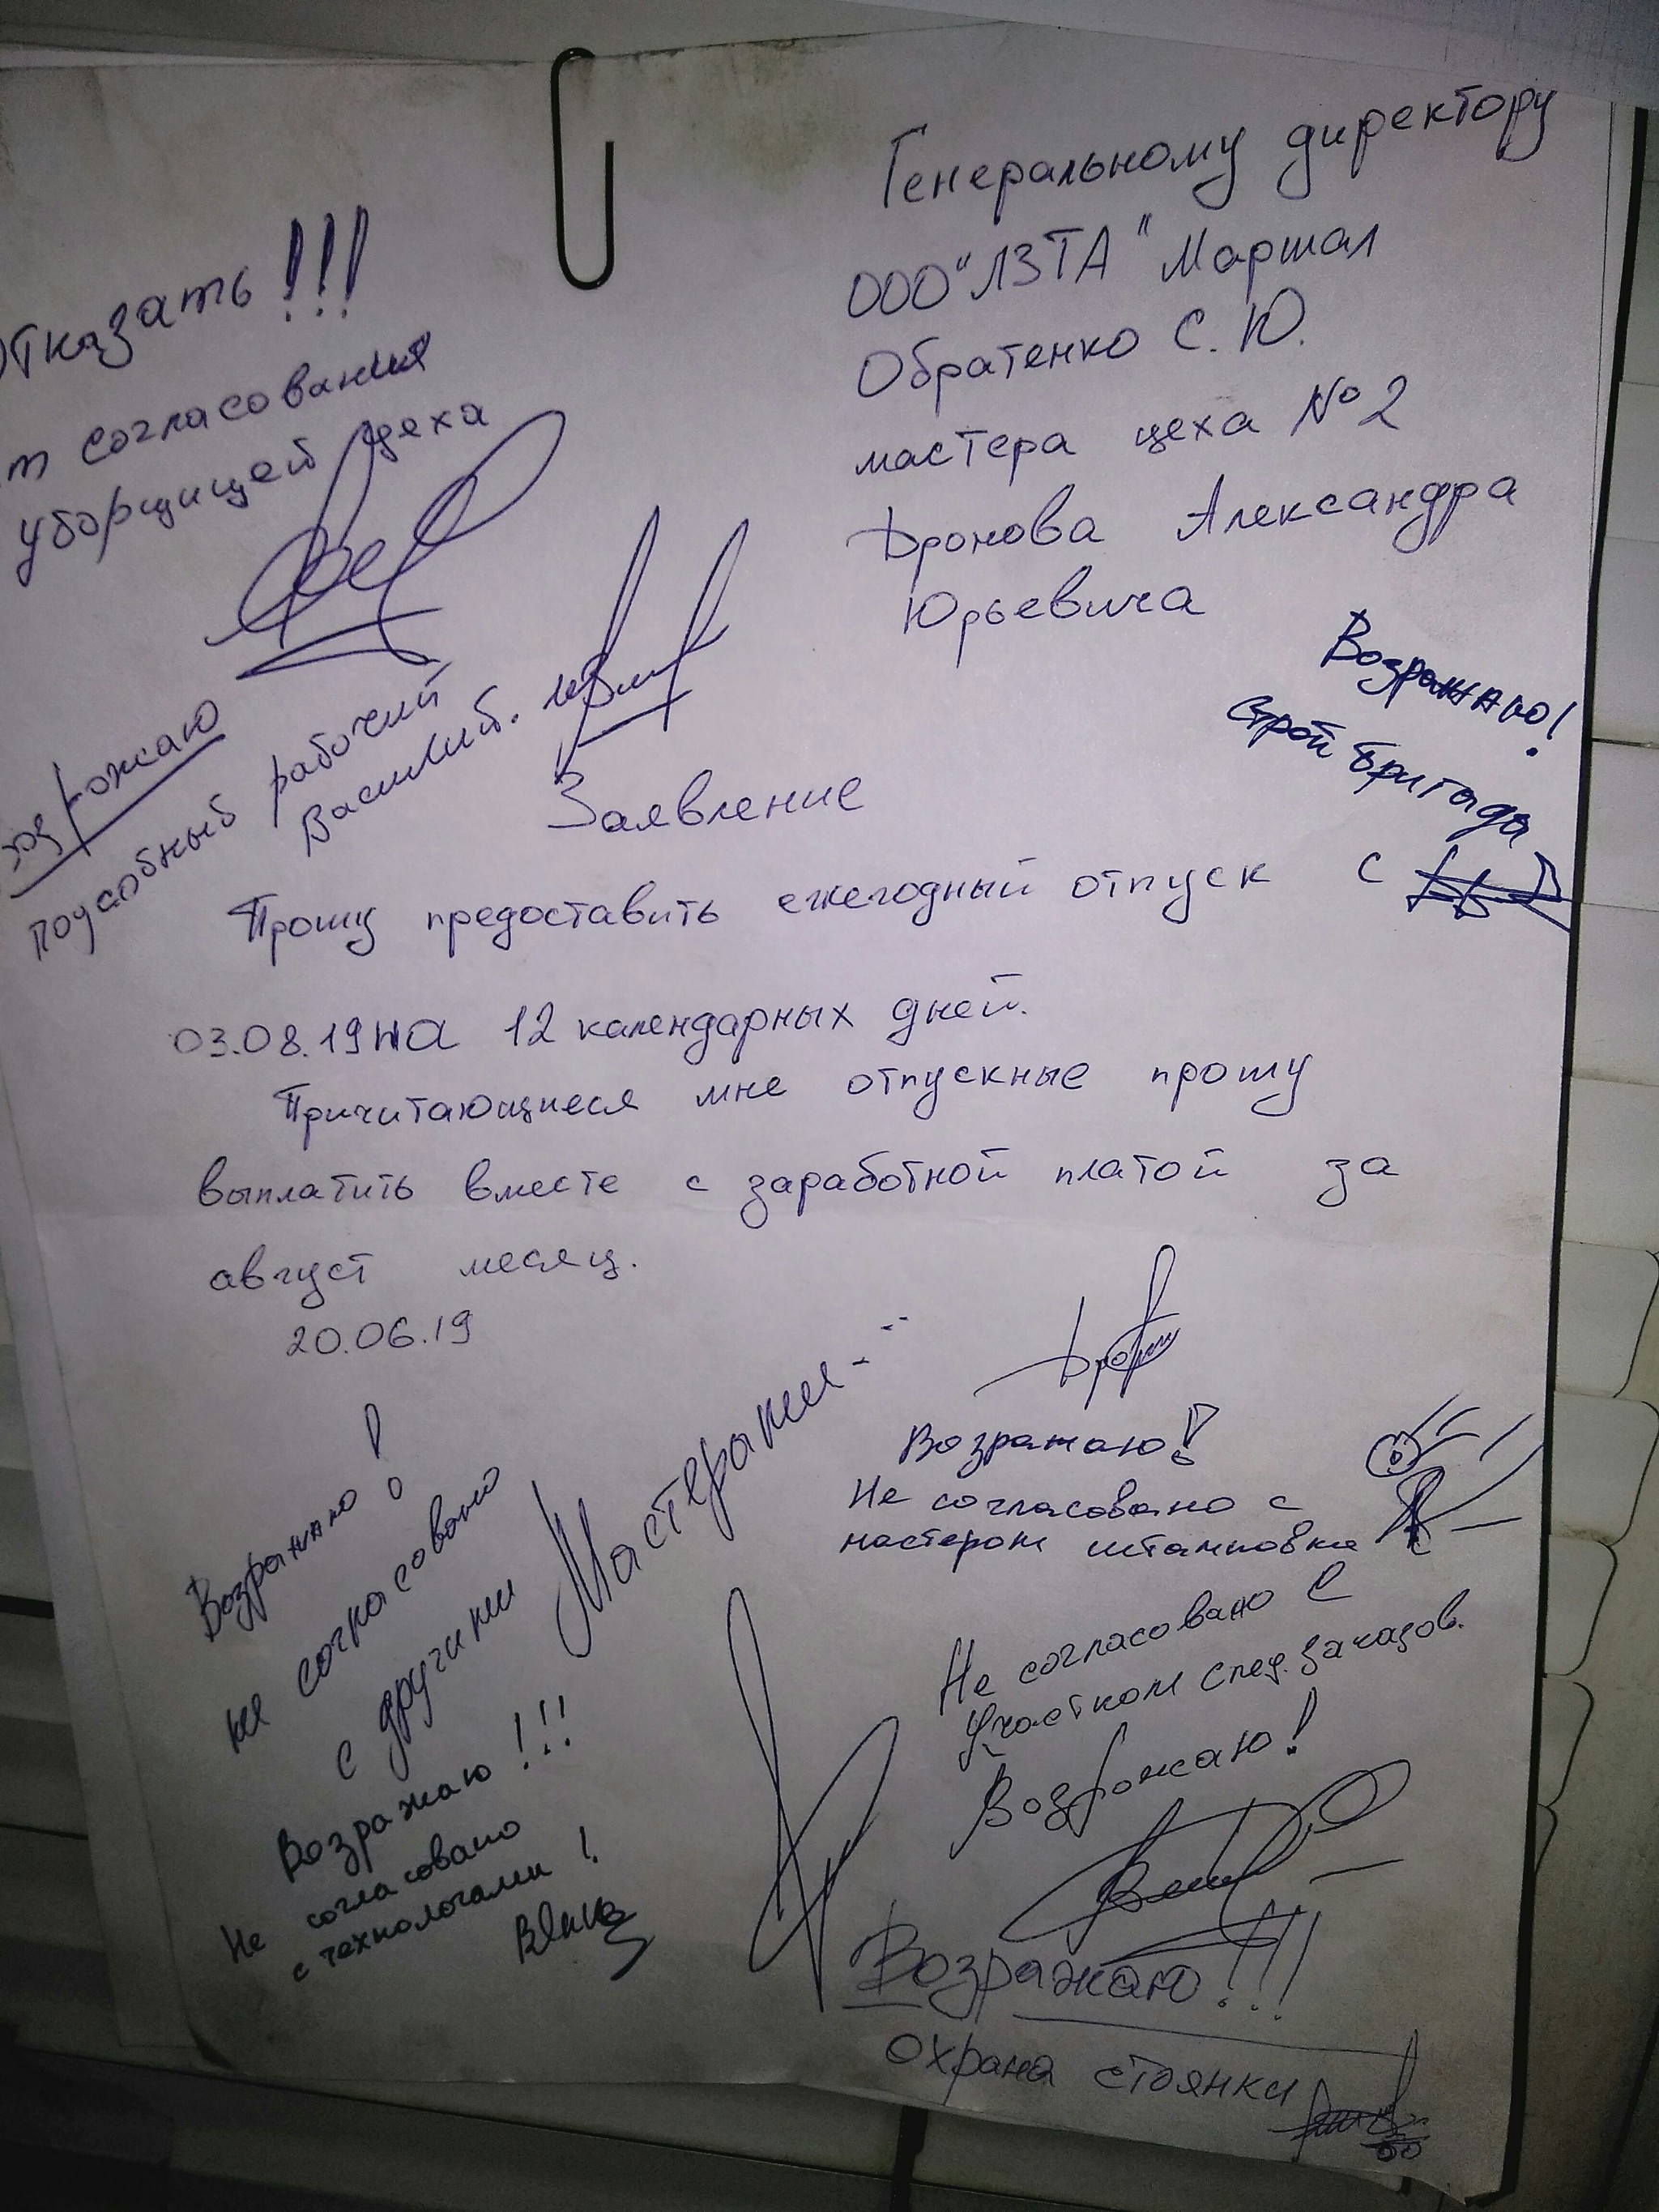 Генеральному директору
ООО "ЛЗТА" Маршал
Обратенко С. Ю.
мастера цеха № 2
Дронова Александра
Юрьевича
Отказать!!!
т согласования
уборщицей цеха
возрожаю
подсобный рабочий
Василий.
Возражаю!
Строй Бригада
Заявление
Прошу предоставить ежегодный отпуск с
03.08.19 на 12 календарных дней.
Причитающиеся мне отпускные прошу
выплатить вместе с заработной платой за
август месяц.
20.06.19
Возражаю!
не согласовано
с другими Мастерами
Возражаю!
Не согласовано с
мастером штамповки
Не согласовано с
Участком спец. заказов.
Возрожаю!
Возражаю!!!
Не согласовано
с технологами!
Возражаю!!!
охрана стоянки